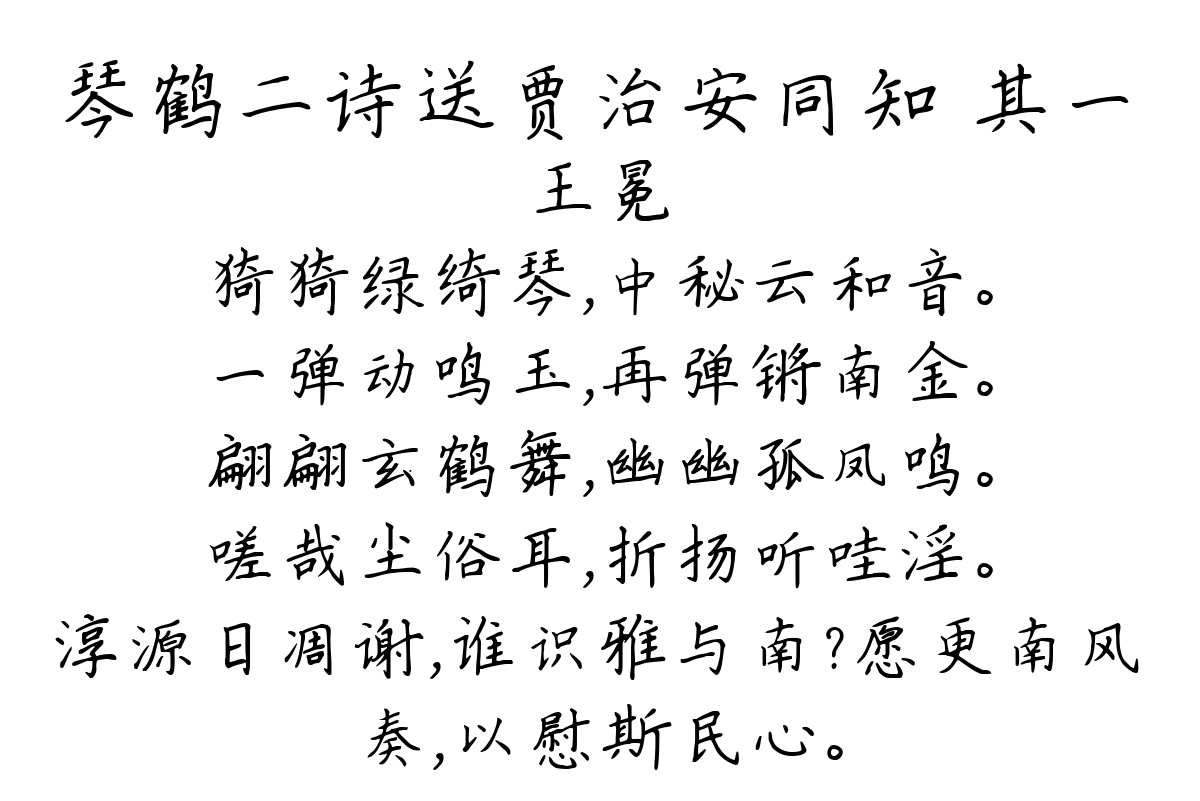 琴鹤二诗送贾治安同知 其一
王冕
猗猗绿绮琴,中秘云和音。
一弹动鸣玉,再弹锵南金。
翩翩玄鹤舞,幽幽孤凤鸣。
嗟哉尘俗耳,折扬听哇淫。
淳源日凋谢,谁识雅与南?愿更南风
奏,以慰斯民心。